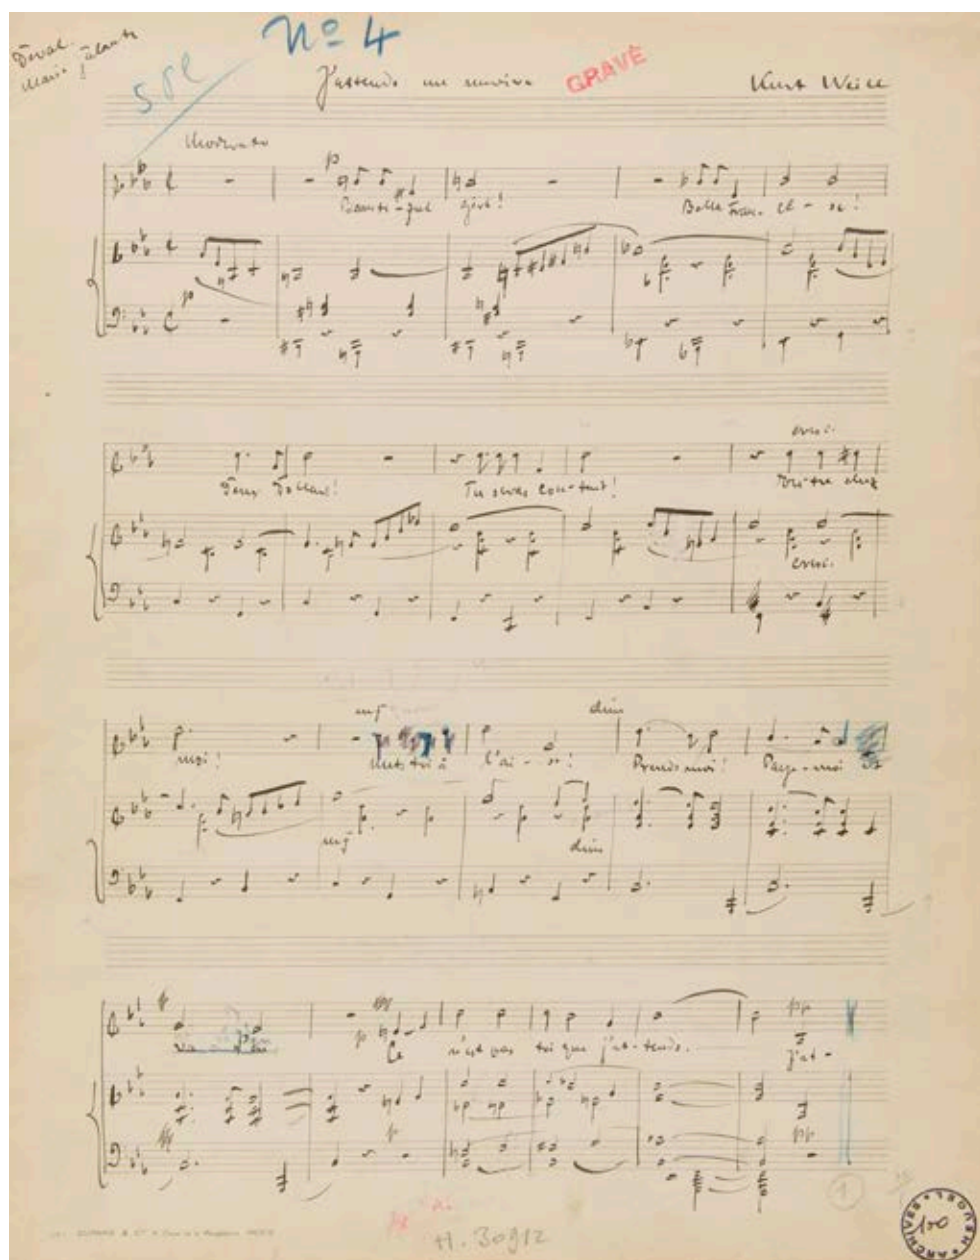 Deval.
Marie Galante
No 4
J'attends un navire
GRAVÉ
Kurt Weill
Moderato
p
Beauti-ful girl! Belle Fran-
p
Deux Dollars! Tu seras con-tent! Entre chez
cresc.
moi! mets-toi à l'ai-se! Prends-moi! Paye-moi
mf dim
mf dim
Ce n'est pas toi que j'at-tends. J'at-
p pp
p pp
1
H. 30912
100